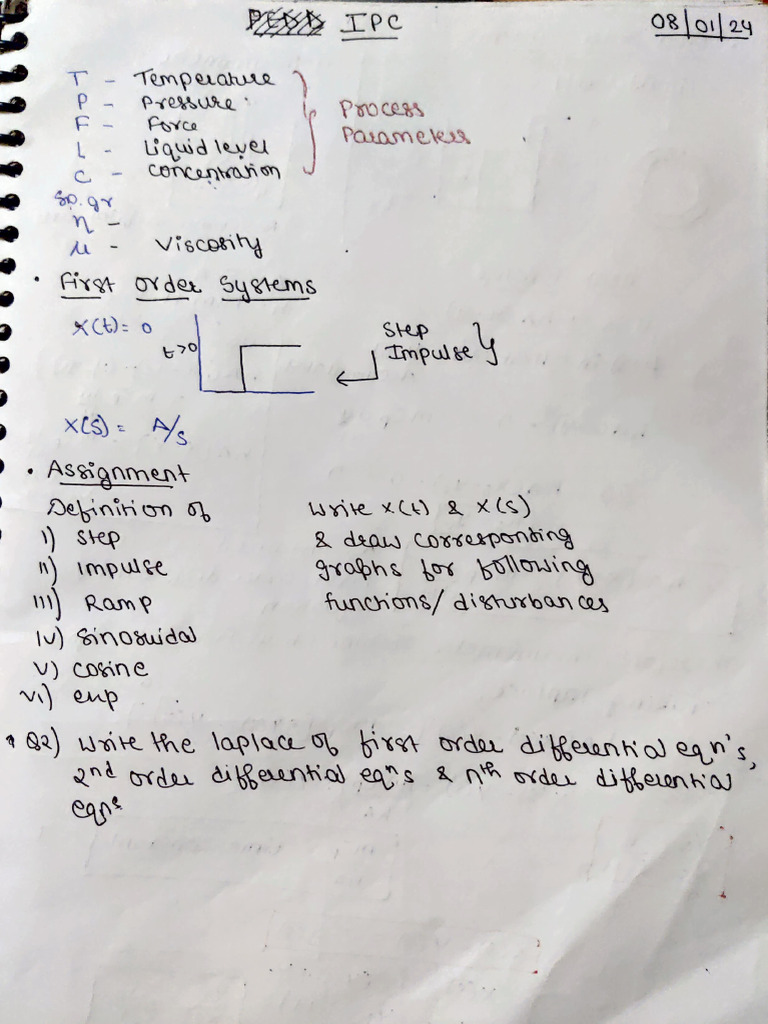 IPC
08/01/24
T - Temperature
P - Pressure
F - Force
L - Liquid level
C - Concentration
Process
Parameters
Sp.gr
η -
μ - Viscosity
• First Order Systems
X(t) = 0
t>0
Step
Impulse
X(S) = A/s
• Assignment
Definition of
i) Step
ii) Impulse
iii) Ramp
iv) Sinosuidal
v) Cosine
vi) exp
Write x(t) & x(s)
& draw corresponding
graphs for following
functions/disturbances
Q2) Write the laplace of first order differential eqn's,
2nd order differential eqns & nth order differential
eqns